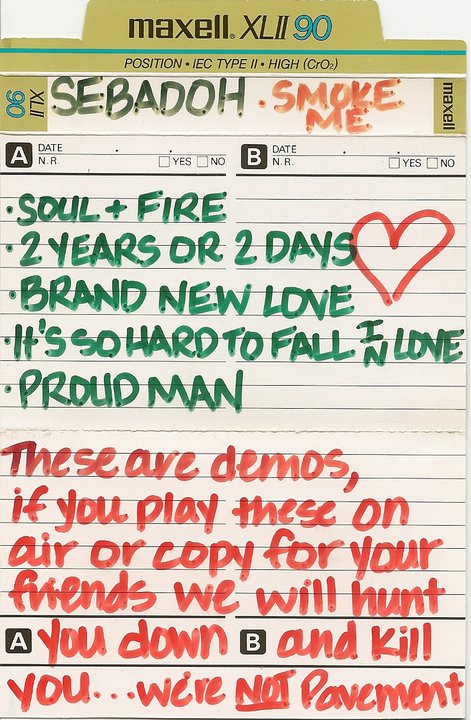 maxell® XLII 90
POSITION • IEC TYPE II • HIGH (CrO₂)
XLII 90 SEBADOH • SMOKE ME maxell
A DATE . . B DATE . .
N.R. YES NO N.R. YES NO
• SOUL + FIRE
• 2 YEARS OR 2 DAYS
• BRAND NEW LOVE
• IT'S SO HARD TO FALL IN LOVE
• PROUD MAN
These are demos,
if you play these on
air or copy for your
friends we will hunt
A you down B and kill
you...we're NOT Pavement